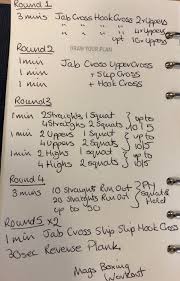 Round 1
3 mins Jab Cross Hook Cross 2 Uppers
" " " " 4 Uppers
" " upt 10 Uppers
Round 2
DRAW YOUR PLAN
1 min Jab Cross Upper Cross
1 min + Slip Cross
1 min + Hook Cross
Round 3
1 min 2 Straights 1 Squat } up to
4 Straights 2 Squats } 10/5
1 min 2 Uppers 1 Squat } up to
4 Uppers 2 Squats } 10/5
1 min 2 Highs 1 squat } up to
4 Highs 2 squats } 10/5
Round 4
3 mins 10 Straights Run Out
20 Straights Run Out } Squat
up to 50 & Hold
Round 5 x2
1 min Jab Cross Slip Slip Hook Cross
30 sec Reverse Plank
Mags Boxing
Workout